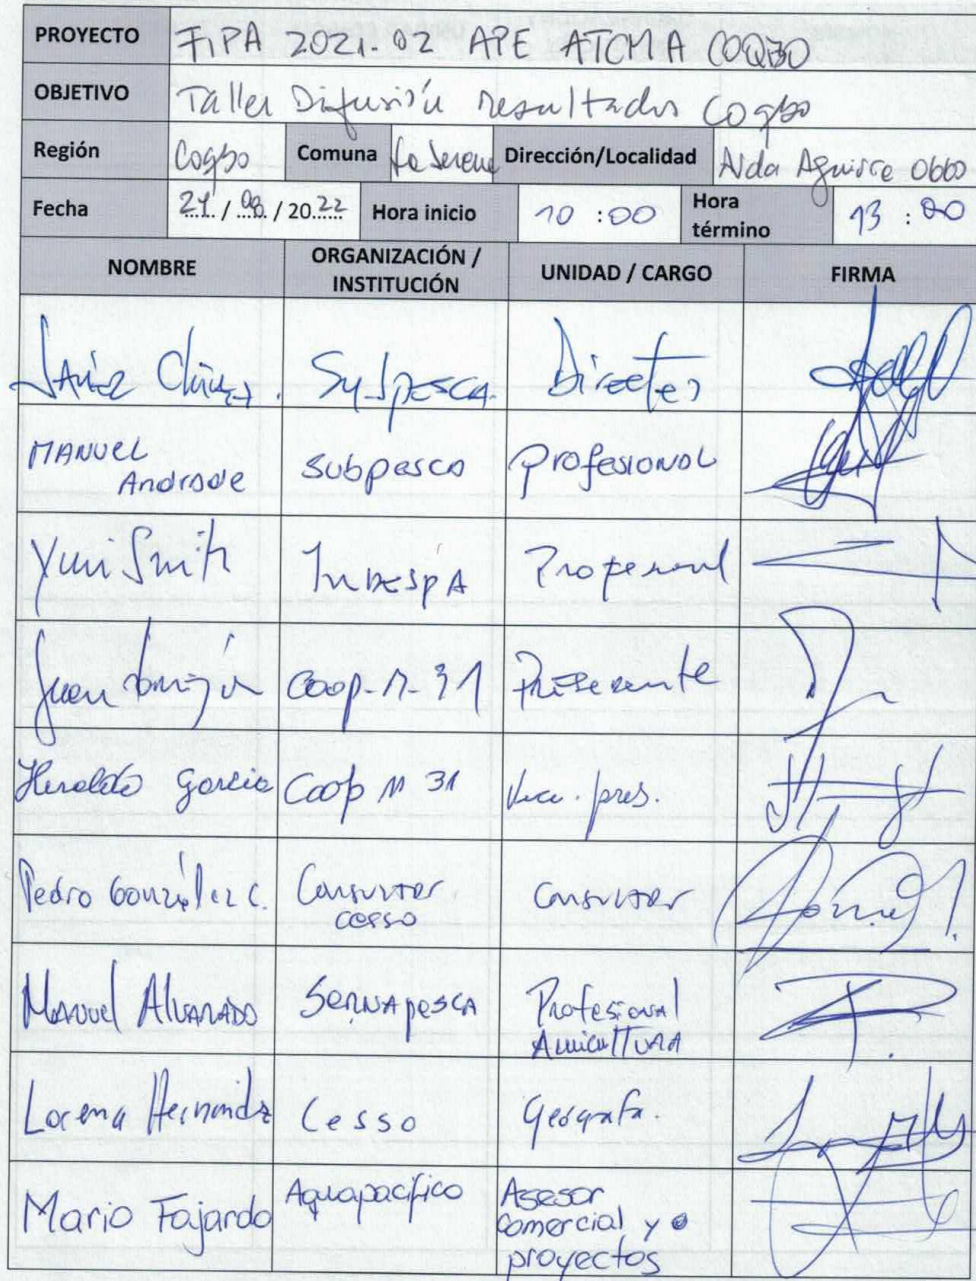 PROYECTO FIPA 2021-02 APE ATCMA COQBO
OBJETIVO Taller Difusión resultados Coqbo
Región Coqbo Comuna La Serena Dirección/Localidad Aida Aguirre 0660
Fecha 24 / 08 / 2022 Hora inicio 10 : 00 Hora término 13 : 00
NOMBRE ORGANIZACIÓN / INSTITUCIÓN UNIDAD / CARGO FIRMA
Subpesca Director
MANUEL Andrade Subpesca Profesional
Yuri Smith INDESPA Profesional
Juan Coop-M-31 Presidente
Heraldo García Coop M 31 Vice. pres.
Pedro González C. Consultor cesso Consultor
Manuel Alvarado Sernapesca Profesional Acuicultura
Lorena Hernández Cesso Geógrafa.
Mario Fajardo Aquapacífico Asesor comercial y proyectos